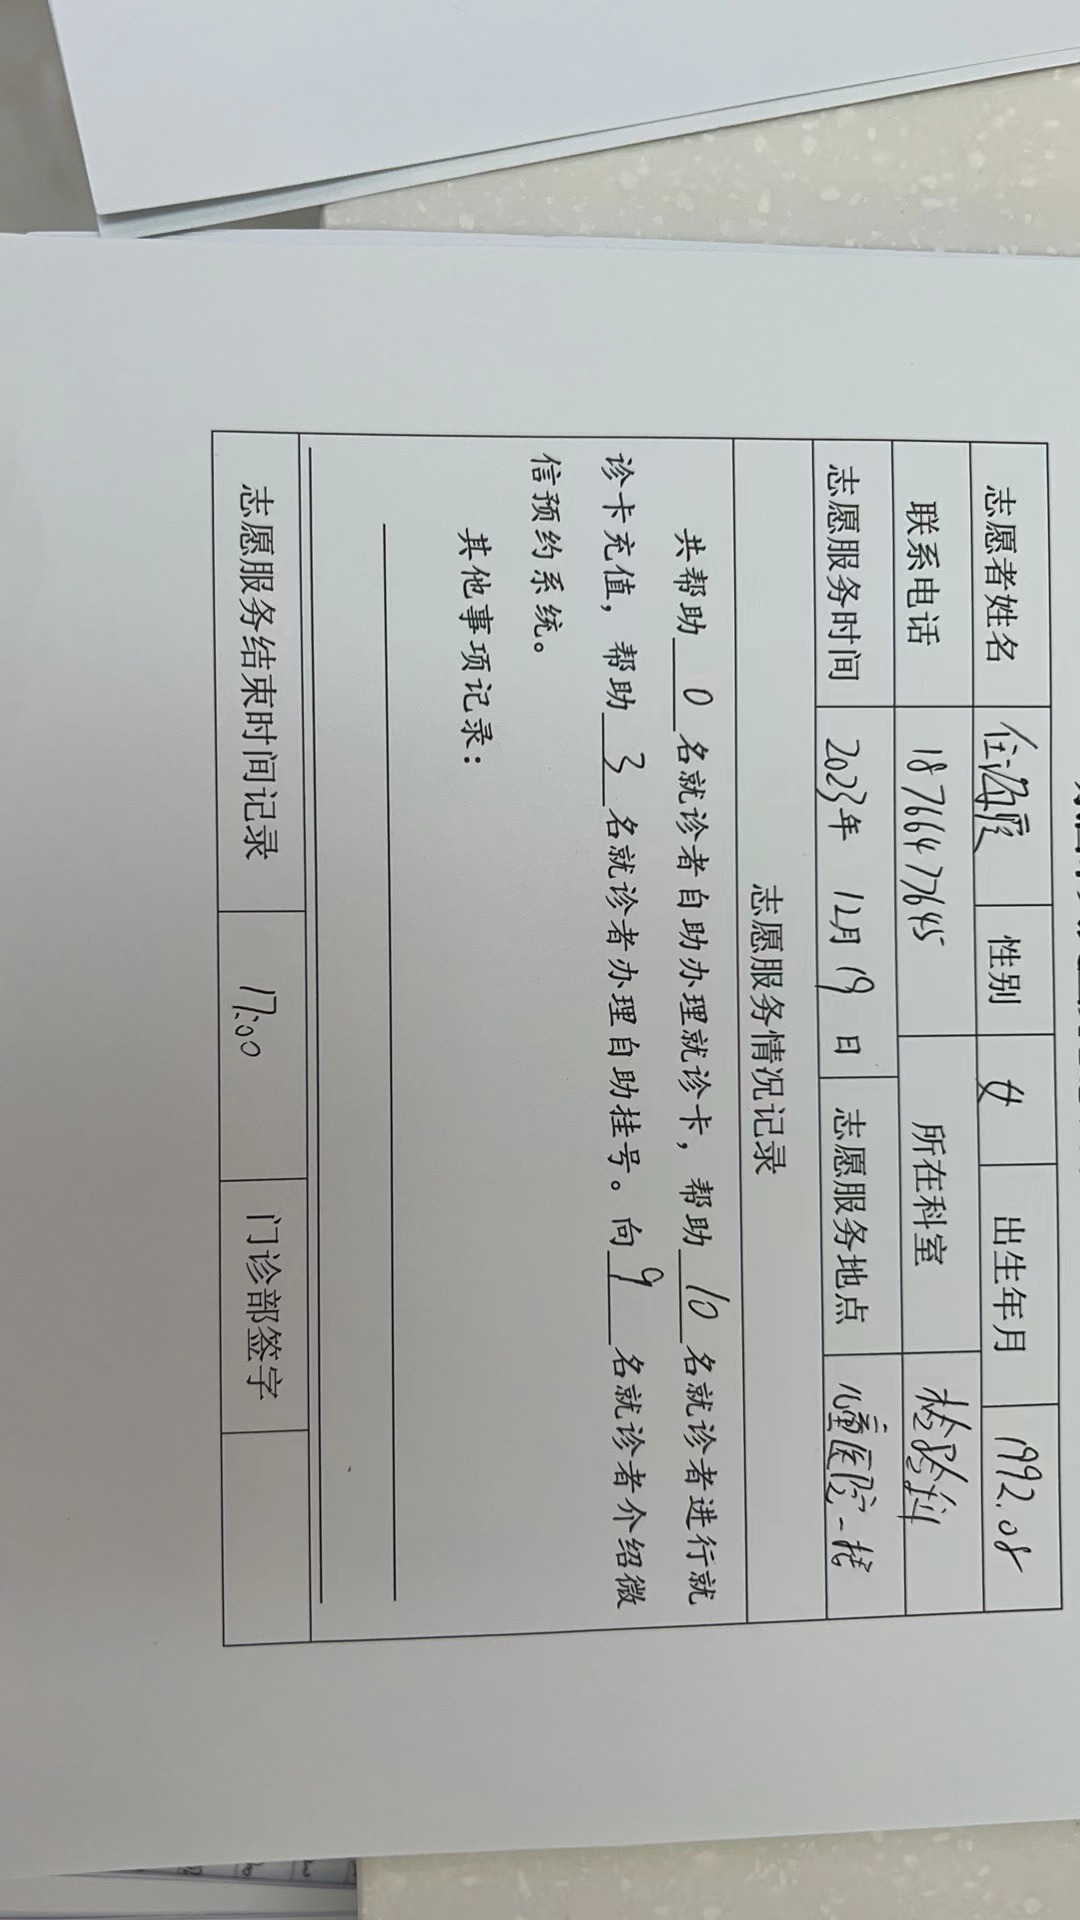 志愿者姓名 任 性别 女 出生年月 1992.08
联系电话 18766477645 所在科室 检验科
志愿服务时间 2023年 12月19日 志愿服务地点 儿童医院一楼
志愿服务情况记录
共帮助 0 名就诊者自助办理就诊卡，帮助 10 名就诊者进行就
诊卡充值，帮助 3 名就诊者办理自助挂号。向 9 名就诊者介绍微
信预约系统。
其他事项记录：
志愿服务结束时间记录 17:00 门诊部签字